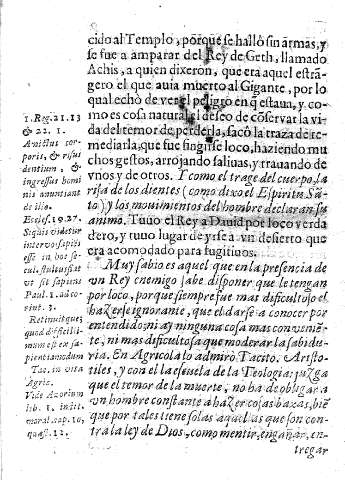 cido al Templo, porque se hallò sin armas, y
se fue a amparar del Rey de Geth, llamado
Achis, a quien dixeron, que era aquel estrã-
gero el que auia muerto al Gigante, por lo
qual echò de ver el peligro en q̃ estaua, y co-
mo es cosa natural el deseo de cõseruar la vi-
da del temor de perderla, sacò la traza de re-
mediarla, que fue fingirse loco, haziendo mu
chos gestos, arrojando saliuas, y trauando de
vnos y de otros. Y como el trage del cuerpo, la
risa de los dientes (como dixo el Espiritu Sã-
to) y los mouimientos del hombre declaran su
animo. Tuuo el Rey a Dauid por loco verda
dero, y tuuo lugar de yrse a vn desierto que
era acomodado para fugitiuos.
Muy sabio es aquel que en la presencia de
vn Rey enemigo sabe disponer que le tengan
por loco, porque siempre fue mas dificultoso el
hazerse ignorante, que el darse a conocer por
entendido; ni ay ninguna cosa mas conuenie͂-
te, ni mas dificultosa que moderar la sabidu-
ria. En Agricola lo admirò Tacito. Aristo-
tiles, y con el la escuela de la Teologia: juzga
que el temor de la muerte, no ha de obligar a
vn hombre constante a hazer cosas baxas, biẽ
que por tales tiene solas aquellas que son con-
tra la ley de Dios, como mentir, engañar, en-
tregar
1. Reg. 21. 13
& 22. 1.
Amictus cor-
poris, & risus
dentium, &
ingressus homi
nis enuntiant
de illo.
Eccles. 19. 27.
Si quis videtur
inter vos sapiẽs
esse in hoc se-
cul. stultus fiat
vt sit sapiens
Paul. 1. ad co-
rint. 3.
Retinuitque,
quod difficilli-
mum est ex sa-
pientia modum
Tac. in vita
Agric.
Vide Azorium
lib. 1. instit.
moral. cap. 10.
quæst. 12.